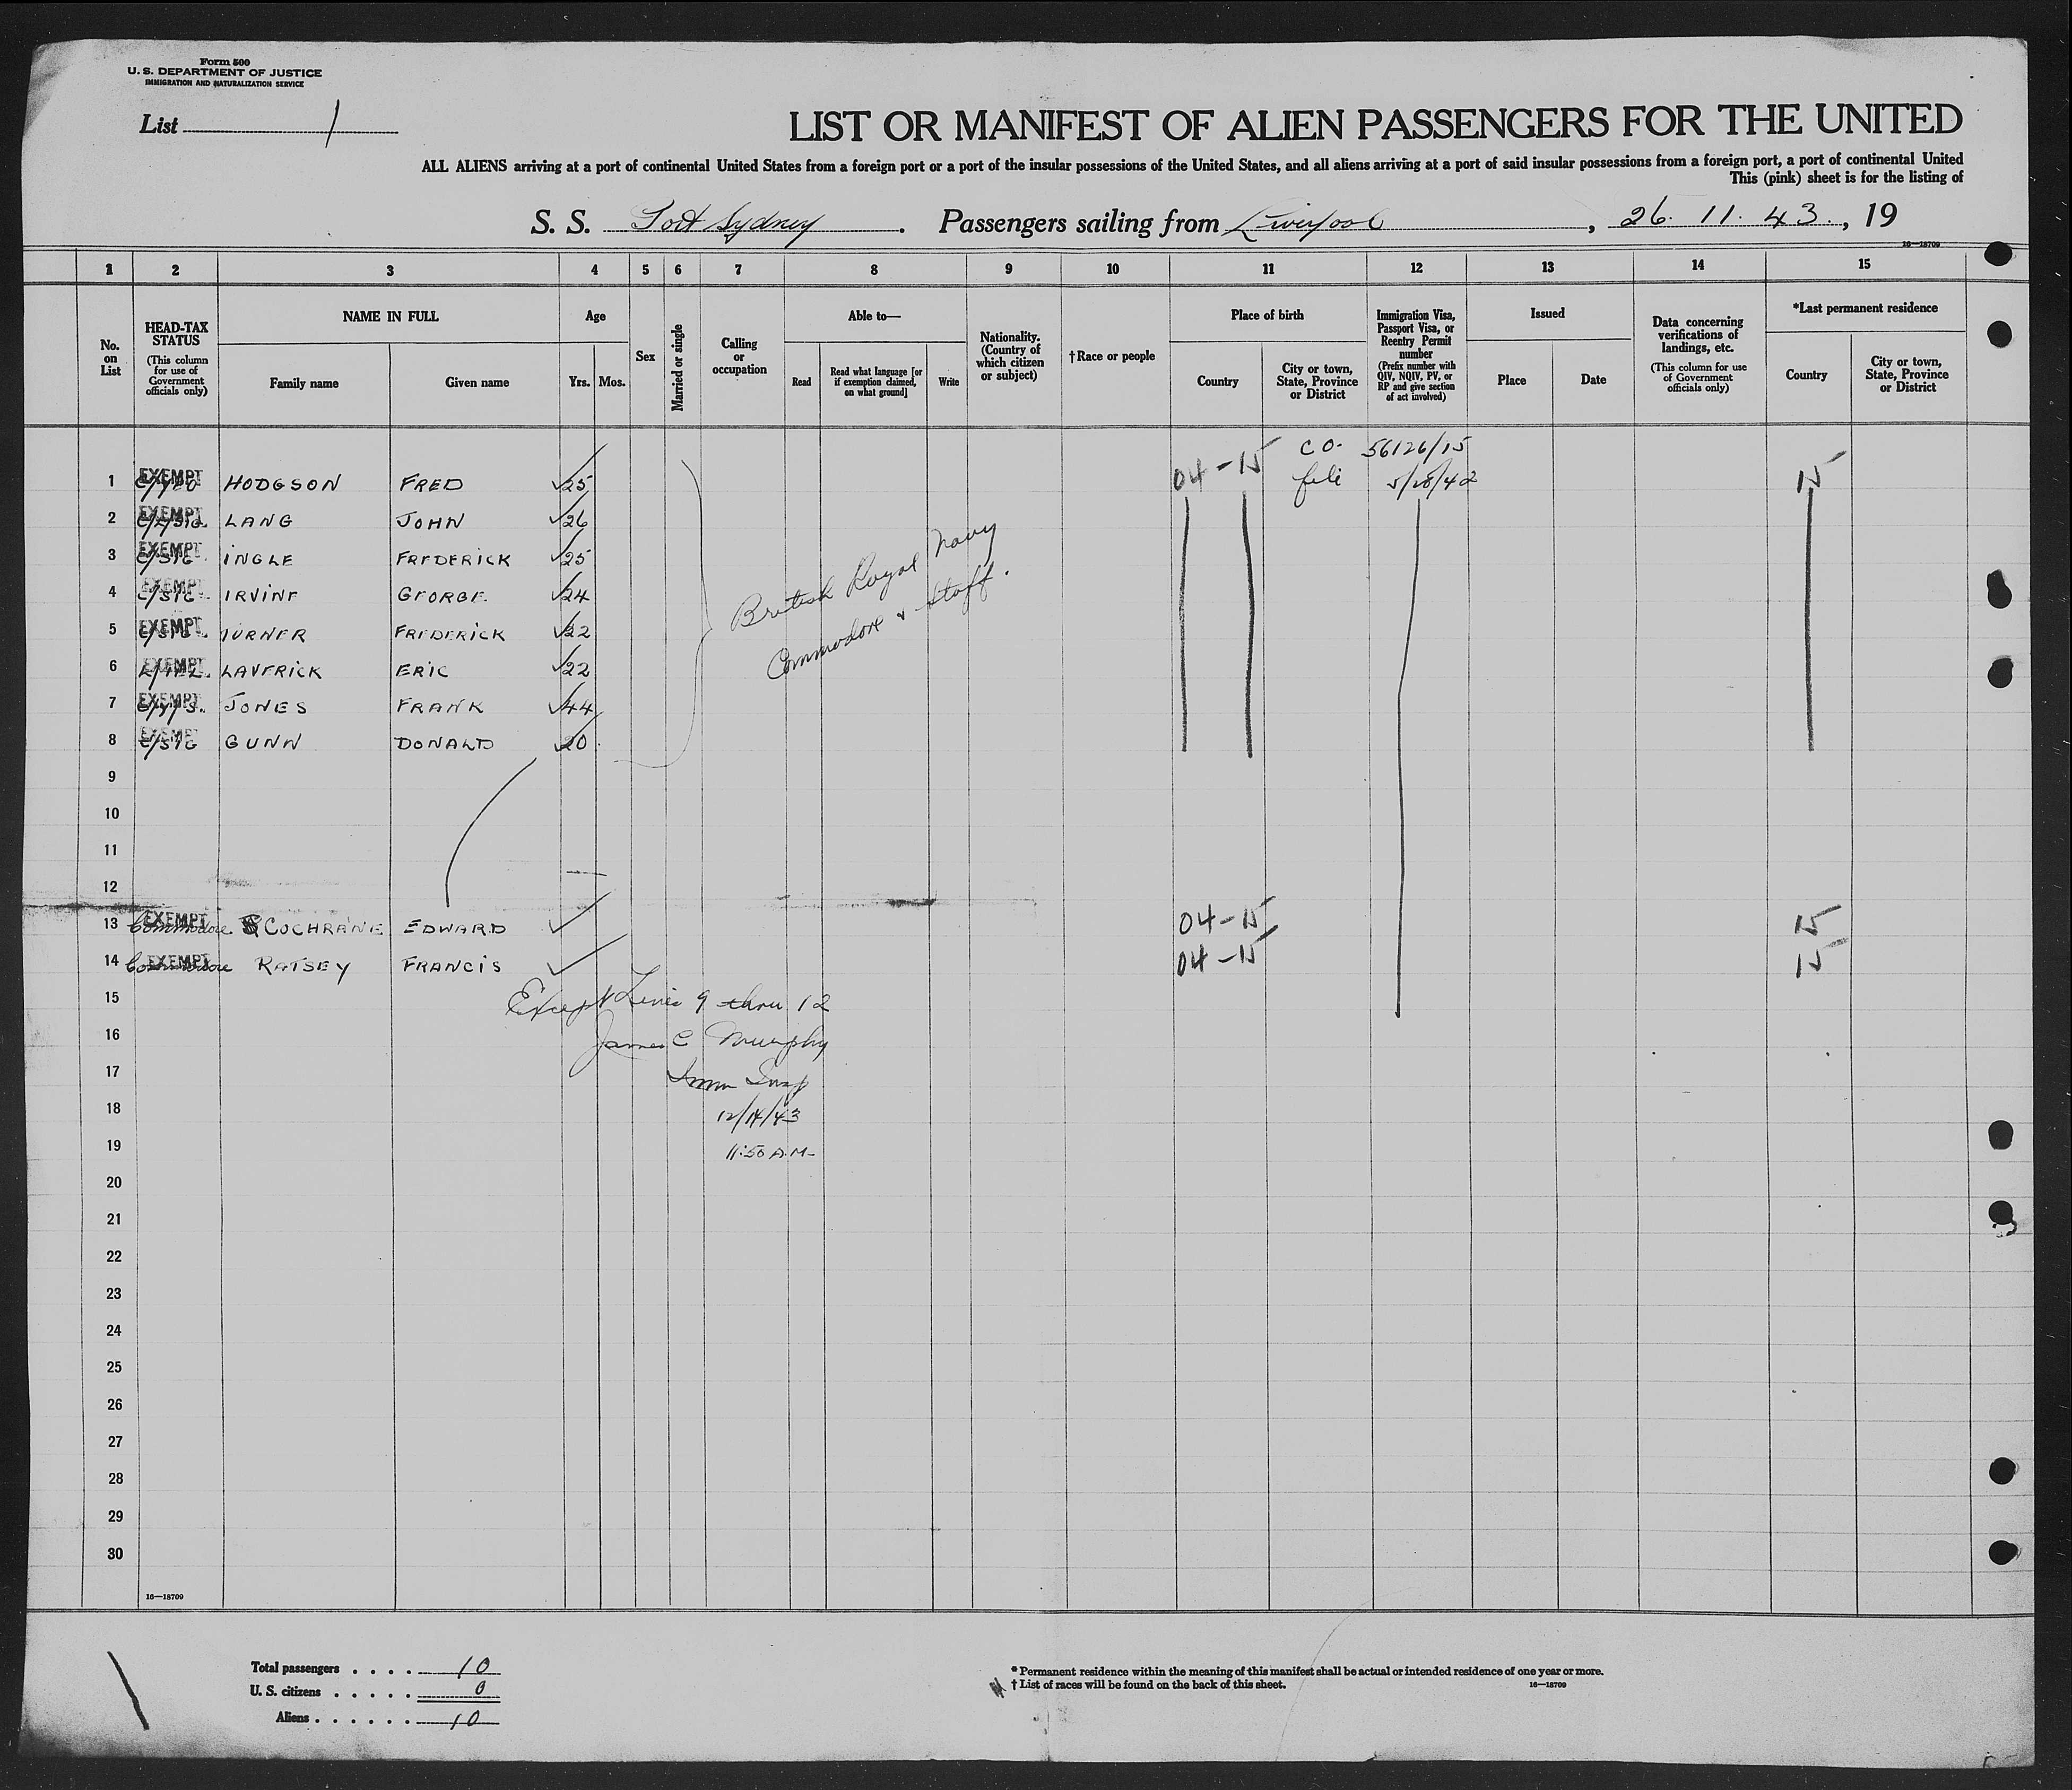 Form 500
U. S. DEPARTMENT OF JUSTICE
IMMIGRATION AND NATURALIZATION SERVICE
List 1
LIST OR MANIFEST OF ALIEN PASSENGERS FOR THE UNITED
ALL ALIENS arriving at a port of continental United States from a foreign port or a port of the insular possessions of the United States, and all aliens arriving at a port of said insular possessions from a foreign port, a port of continental United
This (pink) sheet is for the listing of
S. S. Fort Sydney . Passengers sailing from Liverpool , 26. 11. 43. , 19
16—18709
1 2 3 4 5 6 7 8 9 10 11 12 13 14 15
No. on List
HEAD-TAX STATUS
(This column for use of Government officials only)
NAME IN FULL
Family name
Given name
Age
Yrs. Mos.
Sex
Married or single
Calling or occupation
Able to—
Read
Read what language [or if exemption claimed, on what ground]
Write
Nationality. (Country of which citizen or subject)
†Race or people
Place of birth
Country
City or town, State, Province or District
Immigration Visa, Passport Visa, or Reentry Permit number
(Prefix number with QIV, NQIV, PV, or RP and give section of act involved)
Issued
Place
Date
Data concerning verifications of landings, etc.
(This column for use of Government officials only)
*Last permanent residence
Country
City or town, State, Province or District
C O. 56126/15
1 EXEMPT HODGSON FRED 25 04-15 file 5/28/42 15
2 EXEMPT LANG JOHN 26
3 EXEMPT C/SIG. INGLE FREDERICK 25
4 EXEMPT C/SIG. IRVINE GEORGE. 24
5 EXEMPT C/SIG. TURNER FREDERICK 22
6 EXEMPT LAVERICK ERIC 22
7 EXEMPT JONES FRANK 44
8 EXEMPT C/SIG GUNN DONALD 20
British Royal Navy
Commodore & Staff.
9
10
11
12
13 EXEMPT Commodore COCHRANE EDWARD 04-15 15
14 EXEMPT Commodore RATSEY FRANCIS 04-15 15
15 Except Lines 9 thru 12
16 James C Murphy
17 Imm Insp
18 12/14/43
19 11:50 A.M-
20
21
22
23
24
25
26
27
28
29
30
16—18709
Total passengers . . . . 10
U. S. citizens . . . . . 0
Aliens . . . . . . 10
* Permanent residence within the meaning of this manifest shall be actual or intended residence of one year or more.
† List of races will be found on the back of this sheet. 16—18709